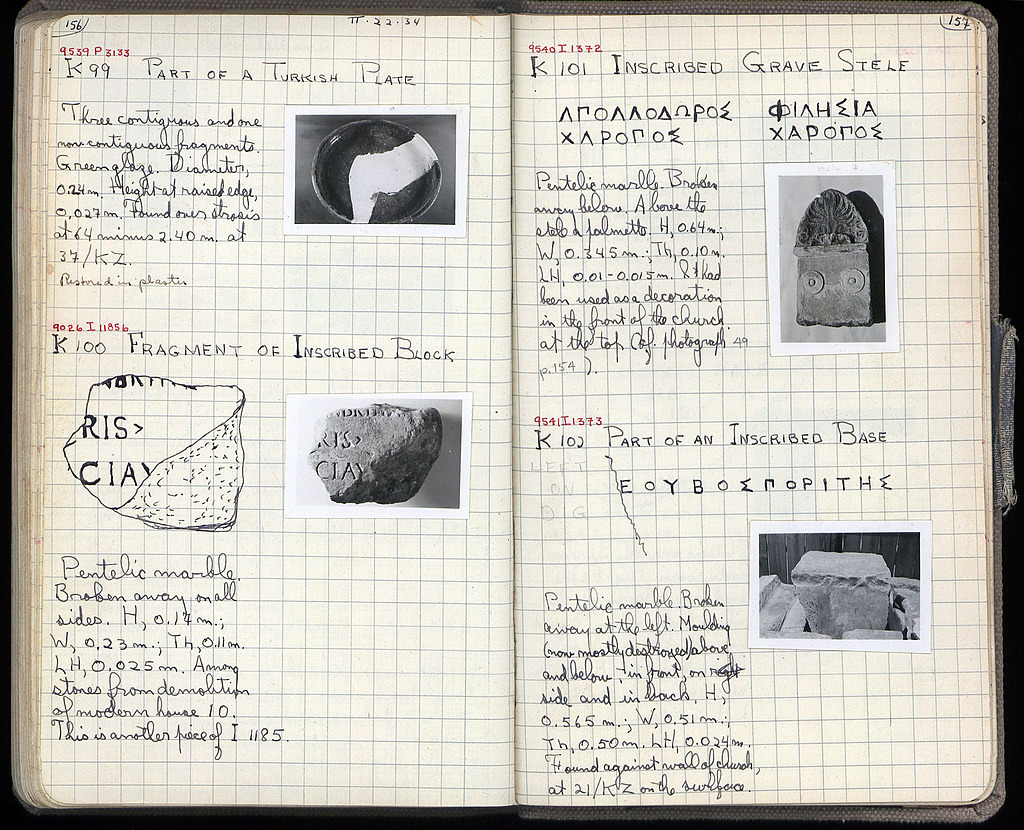 156
II·22·34
9539 P 3133
K 99 PART OF A TURKISH PLATE
Three contiguous and one
non-contiguous fragments.
Green glaze. Diameter,
0.24 m. Height at raised edge,
0.027 m. Found over strosis
at 64 minus 2.40 m. at
37/KZ.
Restored in plaster
9026 I 1185b
K 100 FRAGMENT OF INSCRIBED BLOCK
RIS>
CIAV
RIS>
CIAV
Pentelic marble.
Broken away on all
sides. H, 0.17 m.;
W, 0.23 m.; Th, 0.11 m.
LH, 0.025 m. Among
stones from demolition
of modern house 10.
This is another piece of I 1185.
157
9540 I 1372
K 101 INSCRIBED GRAVE STELE
ΑΠΟΛΛΟΔΩΡΟΣ ΦΙΛΗΣΙΑ
ΧΑΡΟΠΟΣ ΧΑΡΟΠΟΣ
Pentelic marble. Broken
away below. Above the
stele a palmette. H, 0.64 m.;
W, 0.345 m.; Th, 0.10 m.
LH, 0.01-0.015 m. It had
been used as a decoration
in the front of the church
at the top (cf. photograph 49
p. 154).
9541 I 1373
K 102 PART OF AN INSCRIBED BASE
LEFT
ON
ΕΟΥΒΟΣΠΟΡΙΤΗΣ
Pentelic marble. Broken
away at the left. Moulding
(now mostly destroyed) above
and below, in front, on right
side and in back. H,
0.565 m.; W, 0.51 m.;
Th, 0.50 m. LH, 0.024 m.
Found against wall of church,
at 21/KZ on the surface.